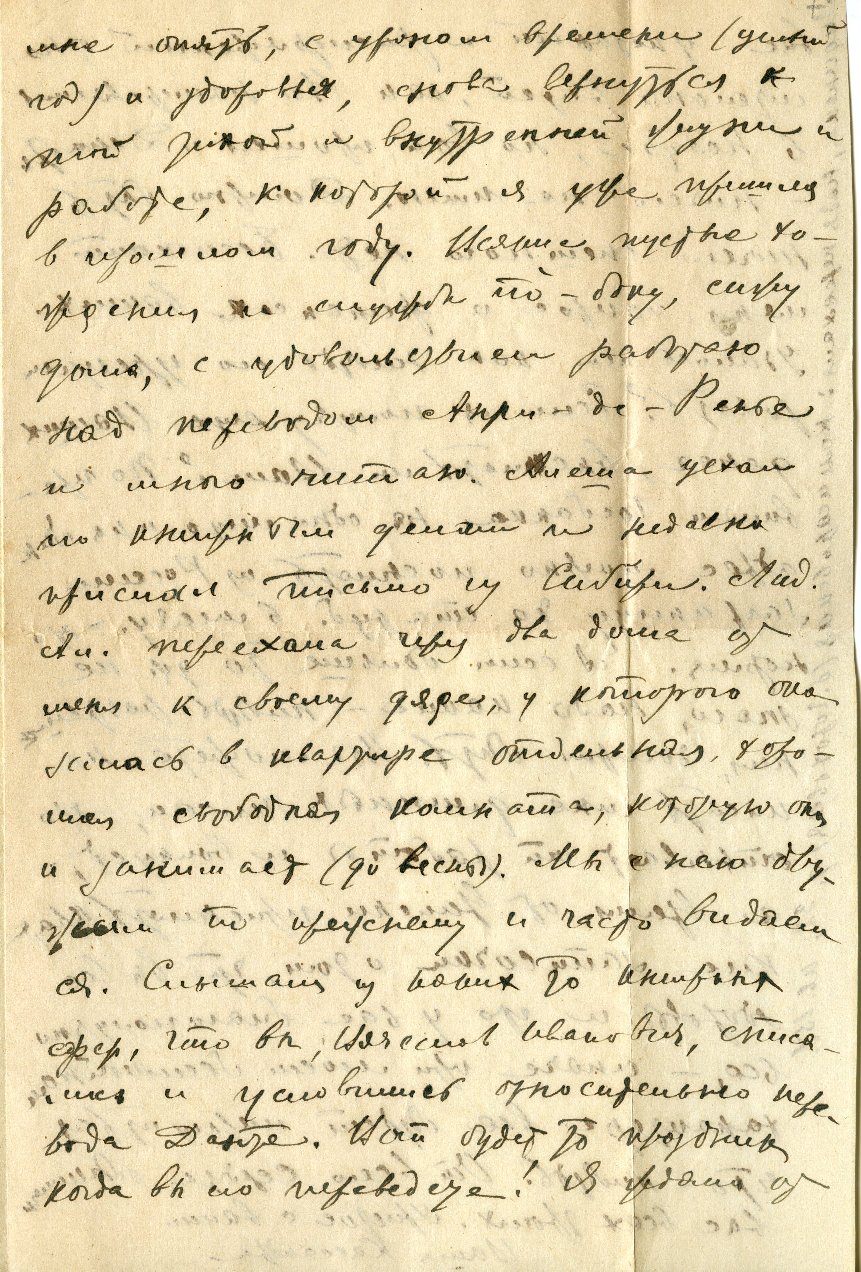 мне опять, с уроном времени (целый
год) и здоровья, снова вернуться к
той тихой и внутренней жизни и
работе, к которой я уже пришла
в прошлом году. Всякие пустые хо-
ждения и службы по-боку, сижу
дома, с удовольствием работаю
над переводом Анри-де-Ренье
и много читаю. Алеша уехал
по книжным делам и недавно
прислал письмо из Сибири. Лид.
Ал. переехала через два дома от
меня к своему дяде, у которого ока
залась в квартире отдельная, хоро-
шая свободная комната, которую она
и занимает (до весны). Мы с нею дру-
жим по прежнему и часто видаем
ся. Слышала из каких то книжных
сфер, что вы, Вячеслав Иванович, списа-
лись и условились относительно пере-
вода Данте. Вот будет то праздник
когда вы его переведете! Я ждала от